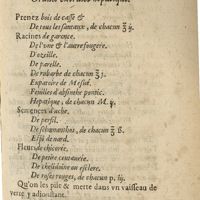 Prenez bois de casse &
De tous les santaux, de chacun ℥ ij.
Racines de garence.
De l'vne & l'autre fougere.
D'ozeille.
De parelle.
De rubarbe de chacun ℥ j.
Eupatoire de Mesué.
Feuilles d'absinthe pontic.
Hepatique, de chacun M. ij.
Semences d'ache.
De persil.
De schœnanthos, de chacun ℥ ß.
Espi de nard.
Fleurs de chicorée.
De petite centaurée.
De chelidoine ou esclere.
De roses rouges, de chacun p. iij.
Qu'on les pile & mette dans vn vaisseau de
verre y adioustant